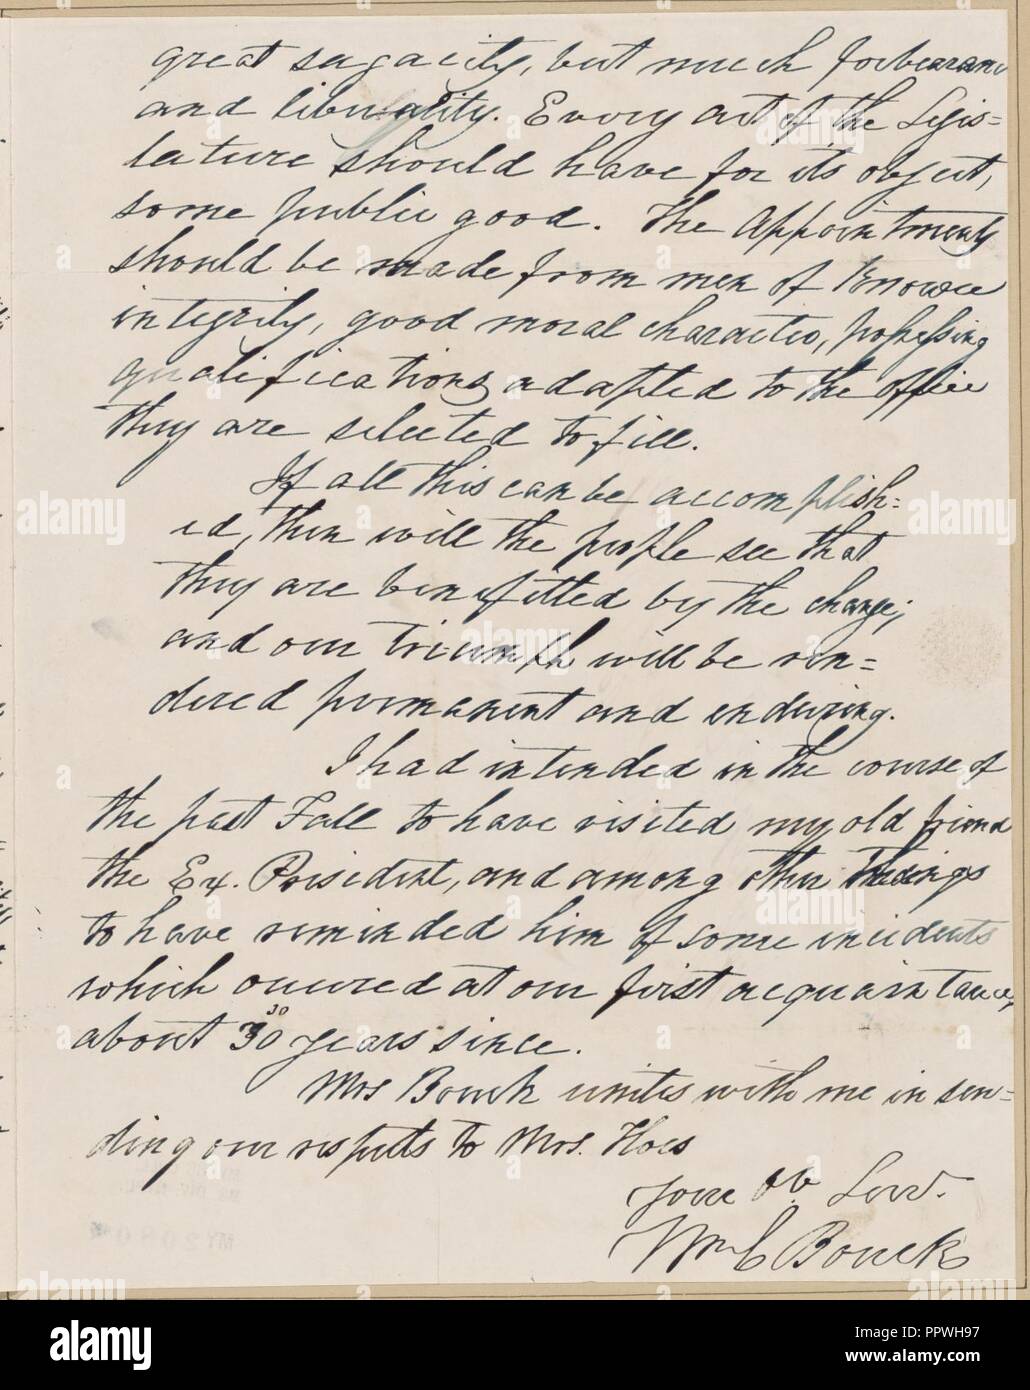 great sagacity, but much forbearance
and liberality. Every act of the Legis=
lature should have for its object,
some public good. The appointments
should be made from men of known
integrity, good moral character, possessing
qualifications adapted to the office
they are selected to fill.
If all this can be accomplish=
ed, then will the people see that
they are benefitted by the change;
and our triumph will be ren=
dered permanent and enduring.
I had intended in the course of
the past Fall to have visited my old friend
the Ex. President, and among other things
to have reminded him of some incidents
which occured at our first acquaintance,
30
about 30 years since.
Mrs Bouck unites with me in sen=
ding our respects to Mrs. Hoes
Your ob Serv.
Wm C Bouck
alamy
Image ID: PPWH97
www.alamy.com